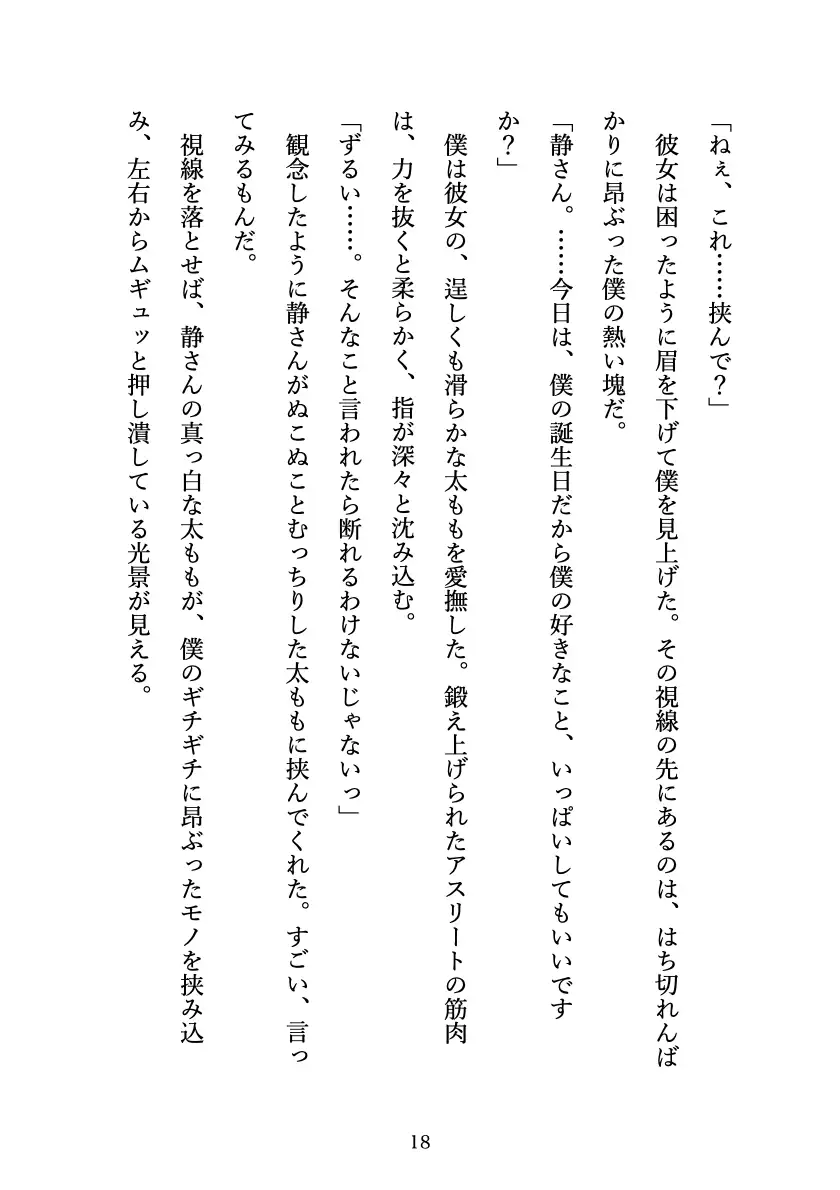 「ねぇ、これ……挟んで？」
　彼女は困ったように眉を下げて僕を見上げた。その視線の先にあるのは、はち切れんば
かりに昂ぶった僕の熱い塊だ。
「静さん。……今日は、僕の誕生日だから僕の好きなこと、いっぱいしてもいいです
か？」
　僕は彼女の、逞しくも滑らかな太ももを愛撫した。鍛え上げられたアスリートの筋肉
は、力を抜くと柔らかく、指が深々と沈み込む。
「ずるい……。そんなこと言われたら断れるわけないじゃないっ」
　観念したように静さんがぬこぬことむっちりした太ももに挟んでくれた。すごい、言っ
てみるもんだ。
　視線を落とせば、静さんの真っ白な太ももが、僕のギチギチに昂ぶったモノを挟み込
み、左右からムギュッと押し潰している光景が見える。
18